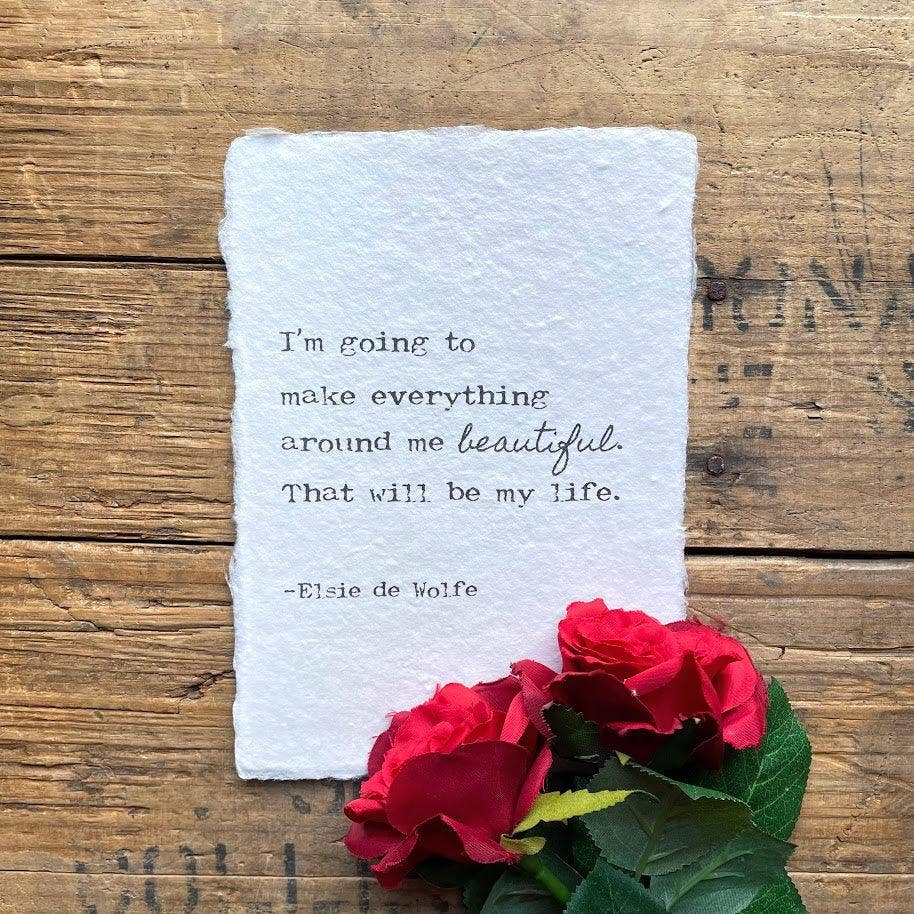 I'm going to
make everything
around me beautiful.
That will be my life.
-Elsie de Wolfe